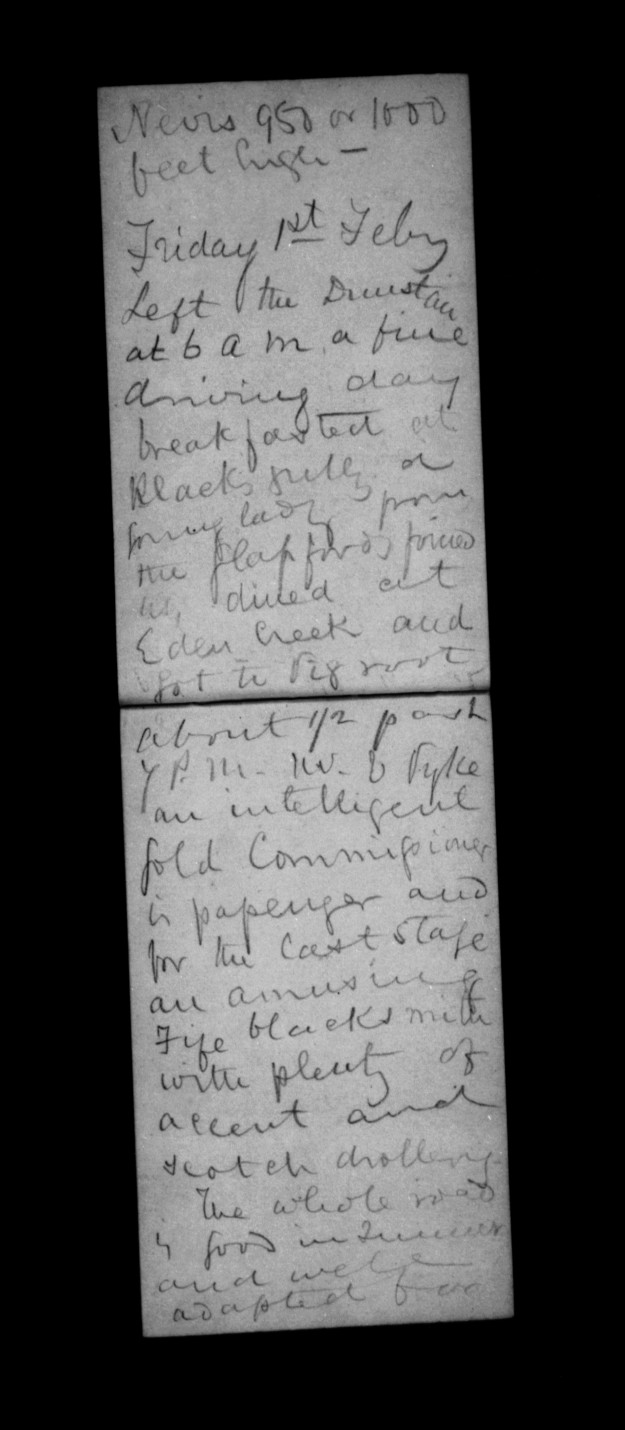 Nevis 950 or 1000
feet high —
Friday 1st Feby
Left the Dunstan
at 6 a m. a fine
driving day
breakfasted at
Blacks gully a
young lady from
the joined
us, dined at
Eden Creek and
got to Pig root
about 1/2 past
7 P.M. Mr. Pyke
an intelligent
Gold Commissioner
is passenger and
for the last stage
an amusing
Fife blacksmith
with plenty of
accent and
scotch drollery
The whole road
is good in Summer
and well
adapted for